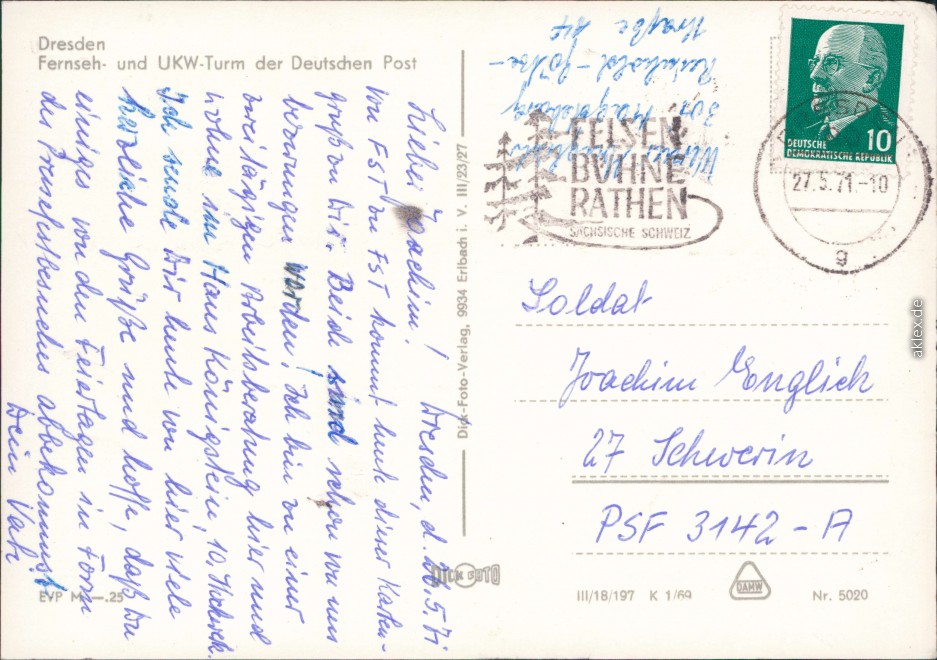 Dresden
Fernseh- und UKW-Turm der Deutschen Post
Dresden, d. 26.5.71
Lieber Joachim!
Von FST zu FST kommt heut dieser Karten-
gruß zu Dir. Beide sind schon von uns
bezwungen worden! Ich bin zu einer
zweitägigen Arbeitsberatung hier und
wohne im Haus Königstein, 10. Stockwerk.
Ich sende Dir heute von hier viele
herzliche Grüße und hoffe, daß Du
einiges von den Feiertagen in Form
des Fresselbesuches abbekommst
Dein Vati
EVP M —.25
Dick-Foto-Verlag, 9934 Erlbach i. V. III/23/27
DICK FOTO
301 Magdeburg
Reinhold-
Straße
FELSEN-
BÜHNE
RATHEN
SÄCHSISCHE SCHWEIZ
27.5.71.-10
g
10
DEUTSCHE
DEMOKRATISCHE REPUBLIK
Soldat
Joachim Englich
27 Schwerin
PSF 3142-A
III/18/197 K 1/69
DAMW
Nr. 5020
aklex.de